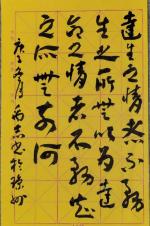 達生之情者不務
生之所無以為達
命之情者不務知
之所無奈何
庚子 月 書於